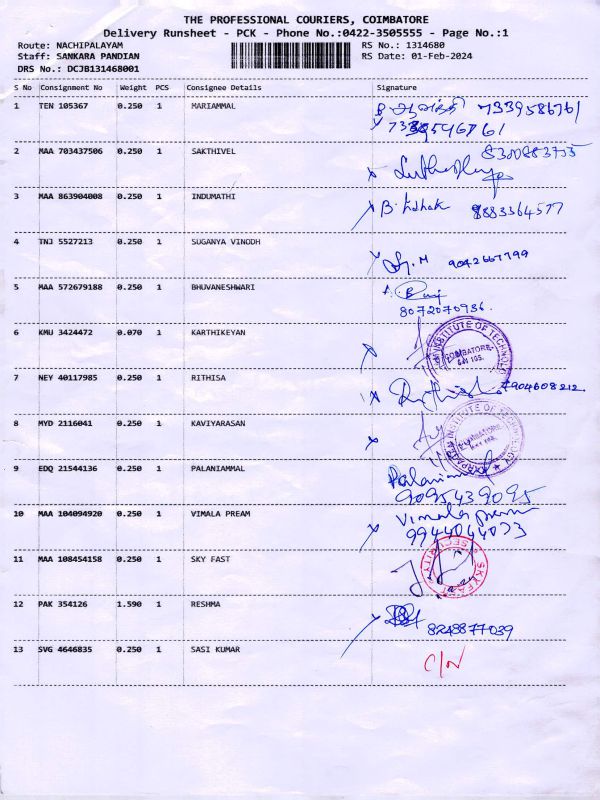 THE PROFESSIONAL COURIERS, COIMBATORE
Delivery Runsheet - PCK - Phone No.:0422-3505555 - Page No.:1
Route: NACHIPALAYAM RS No.: 1314680
Staff: SANKARA PANDIAN RS Date: 01-Feb-2024
DRS No.: DCJB131468001
S No Consignment No Weight PCS Consignee Details Signature
1 TEN 105367 0.250 1 MARIAMMAL 7339586761
2 MAA 703437506 0.250 1 SAKTHIVEL
3 MAA 863904008 0.250 1 INDUMATHI 9883364577
4 TNJ 5527213 0.250 1 SUGANYA VINODH 9042667799
5 MAA 572679188 0.250 1 BHUVANESHWARI
8072070936.
6 KMU 3424472 0.070 1 KARTHIKEYAN
INSTITUTE OF TECHNOLOGY
COIMBATORE-
641 105.
7 NEY 40117985 0.250 1 RITHISA
8 MYD 2116041 0.250 1 KAVIYARASAN
KARPAGAM INSTITUTE OF TECHNOLOGY
9 EDQ 21544136 0.250 1 PALANIAMMAL
9095439095
10 MAA 104094920 0.250 1 VIMALA PREAM Vimala pream
9944044073
11 MAA 108454158 0.250 1 SKY FAST
SKY FAST SECURITY
12 PAK 354126 1.590 1 RESHMA
8248877039
13 SVG 4646835 0.250 1 SASI KUMAR C/N